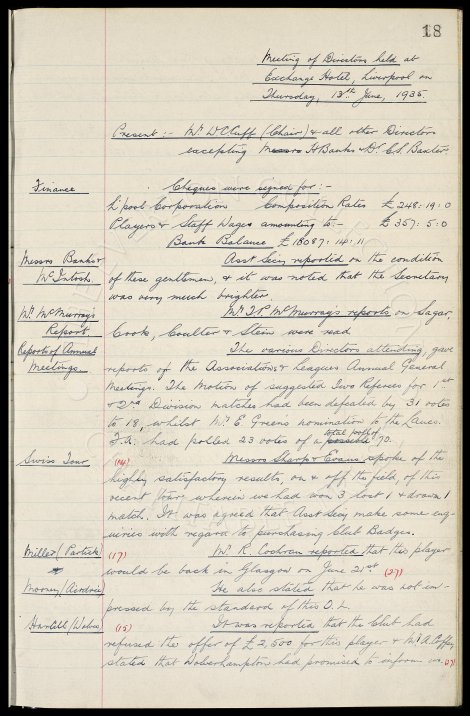 18
Meeting of Directors held at
Exchange Hotel, Liverpool on
Thursday, 13th June, 1935.
Present :- Mr. W. C. Cuff (Chair) & all other Directors
excepting Messrs H. Banks & Dr. C. S. Baxter
Finance
Cheques were signed for :-
L'pool Corporation Composition Rates £248: 19: 0
Players & Staff Wages amounting to :- £357: 5: 0
Bank Balance £18087: 14: 11
Messrs Banks &
McIntosh.
Asst Secy reported on the condition
of these gentlemen, & it was noted that the Secretary
was very much brighter.
Mr. McMurray's
Report.
Mr. T. P. McMurray's reports on Sagar,
Cook, Coulter & Stein were read
Reports of Annual
Meetings
The various Directors attending, gave
reports of the Associations & Leagues Annual General
Meetings. The motion of suggested Two Referees for 1st
& 2nd Division matches had been defeated by 31 votes
to 18, whilst Mr. E. Greens nomination to the Lancs.
total poll of
F.A. had polled 23 votes of a possible 70.
Swiss Tour
(14)
Messrs Sharp & Evans spoke of the
highly satisfactory results, on & off the field, of this
recent tour wherein we had won 3 lost 1 & drawn 1
match. It was agreed that Asst Secy make some enq-
uiries with regard to purchasing Club Badges.
Miller (Partick)
(17)
Mr. R. Cochran reported that this player
would be back in Glasgow on June 21st
(27)
Mooney (Airdrie)
He also stated that he was not im-
pressed by the standard of this O.L.
Hartill (Wolves)
(15)
It was reported that the Club had
refused the offer of £2,500 for this player & Mr. A. Coffey
stated that Wolverhampton had promised to inform us.
(17)